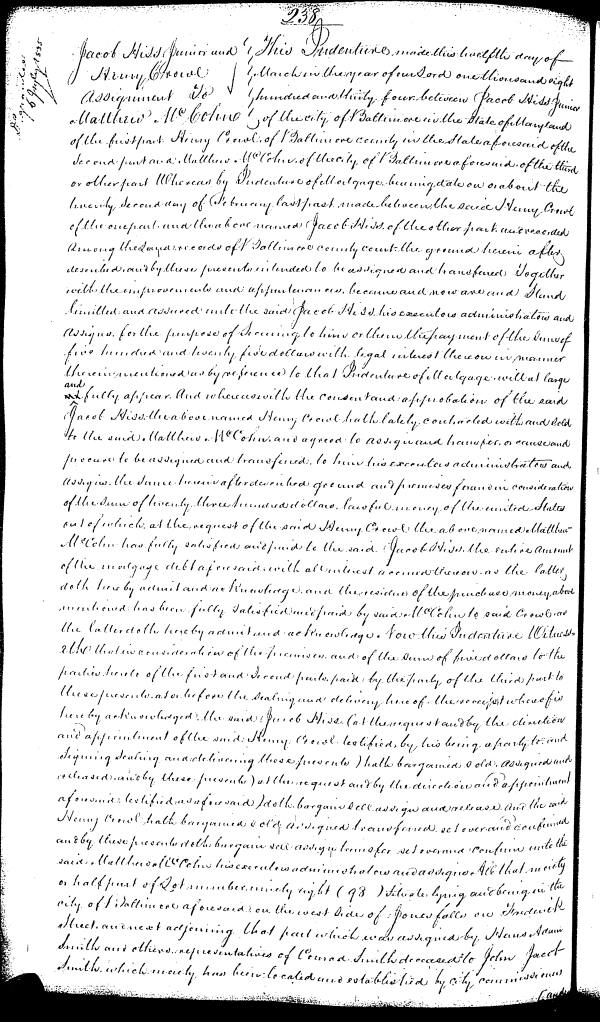 238
Jacob Hiss Junior and This Indenture made this twelfth day of
Henry Crowl March in the year of our Lord one thousand eight
Assignment To hundred and thirty four between Jacob Hiss Junior
Matthew McColm of the city of Baltimore in the State of Maryland
of the first part Henry Crowl of Baltimore county in the State aforesaid of the
Second part and Matthew McColm of the city of Baltimore aforesaid of the third
or other part Whereas by Indenture of Mortgage bearing date on or about the
twenty Second day of February last past made between the said Henry Crowl
of the one part and the above named Jacob Hiss of the other part and recorded
Among the Land records of Baltimore county court the ground herein after
described and by these presents intended to be assigned and transfered Together
with the improvements and appurtenances became and now are and Stand
limitted and assured unto the said Jacob Hiss his executors administrators and
Assigns for the purpose of Securing to him or them the payment of the Sum of
five hundred and twenty five dollars with legal interest thereon in manner
therein mentioned as by reference to that Indenture of Mortgage will at large
and fully appear And whereas with the consent and approbation of the said
Jacob Hiss the above named Henry Crowl hath lately contracted with and Sold
to the said Matthew McColm and agreed to assign and transfer or cause and
procure to be assigned and transfered to him his executors administrators and
Assigns the Same herein after described ground and premises for and in consideration
of the Sum of twenty three hundred dollars lawful money of the united States
out of which at the request of the said Henry Crowl the above named Matthew
McColm has fully satisfied and paid to the said Jacob Hiss the entire amount
of the mortgage debt aforesaid with all interest accrued thereon as the latter
doth hereby admit and acknowledge and the residue of the purchase money above
mentioned has been fully Satisfied and paid by said McColm to said Crowl as
the latter doth hereby admit and acknowledge Now this Indenture Witness
eth that in consideration of the premises and of the Sum of five dollars to the
parties hereto of the first and Second parts paid by the party of the third part to
these presents at or before the Sealing and delivery hereof the receipt whereof is
hereby acknowledged the said Jacob Hiss (at the request and by the direction
and appointment of the said Henry Crowl testified by his being a party to and
Signing Sealing and delivering these presents) hath bargained Sold assigned and
released and by these presents (at the request and by the direction and appointment
aforesaid testified as aforesaid) doth bargain Sell assign and release And the said
Henry Crowl hath bargained Sold assigned transferred set over and confirmed
and by these presents doth bargain sell assign transfer set over and confirm unto the
said Matthew McColm his executors administrators and assigns All that moiety
or half part of Lot number ninety eight (98) Situate lying and being in the
city of Baltimore aforesaid on the west Side of Jones falls on Frederick
Street and next adjoining that part which was assigned by Hans Adam
Smith and others representatives of Conrad Smith deceased to John Jacob
Smith which moiety has been located and established by city commissioners